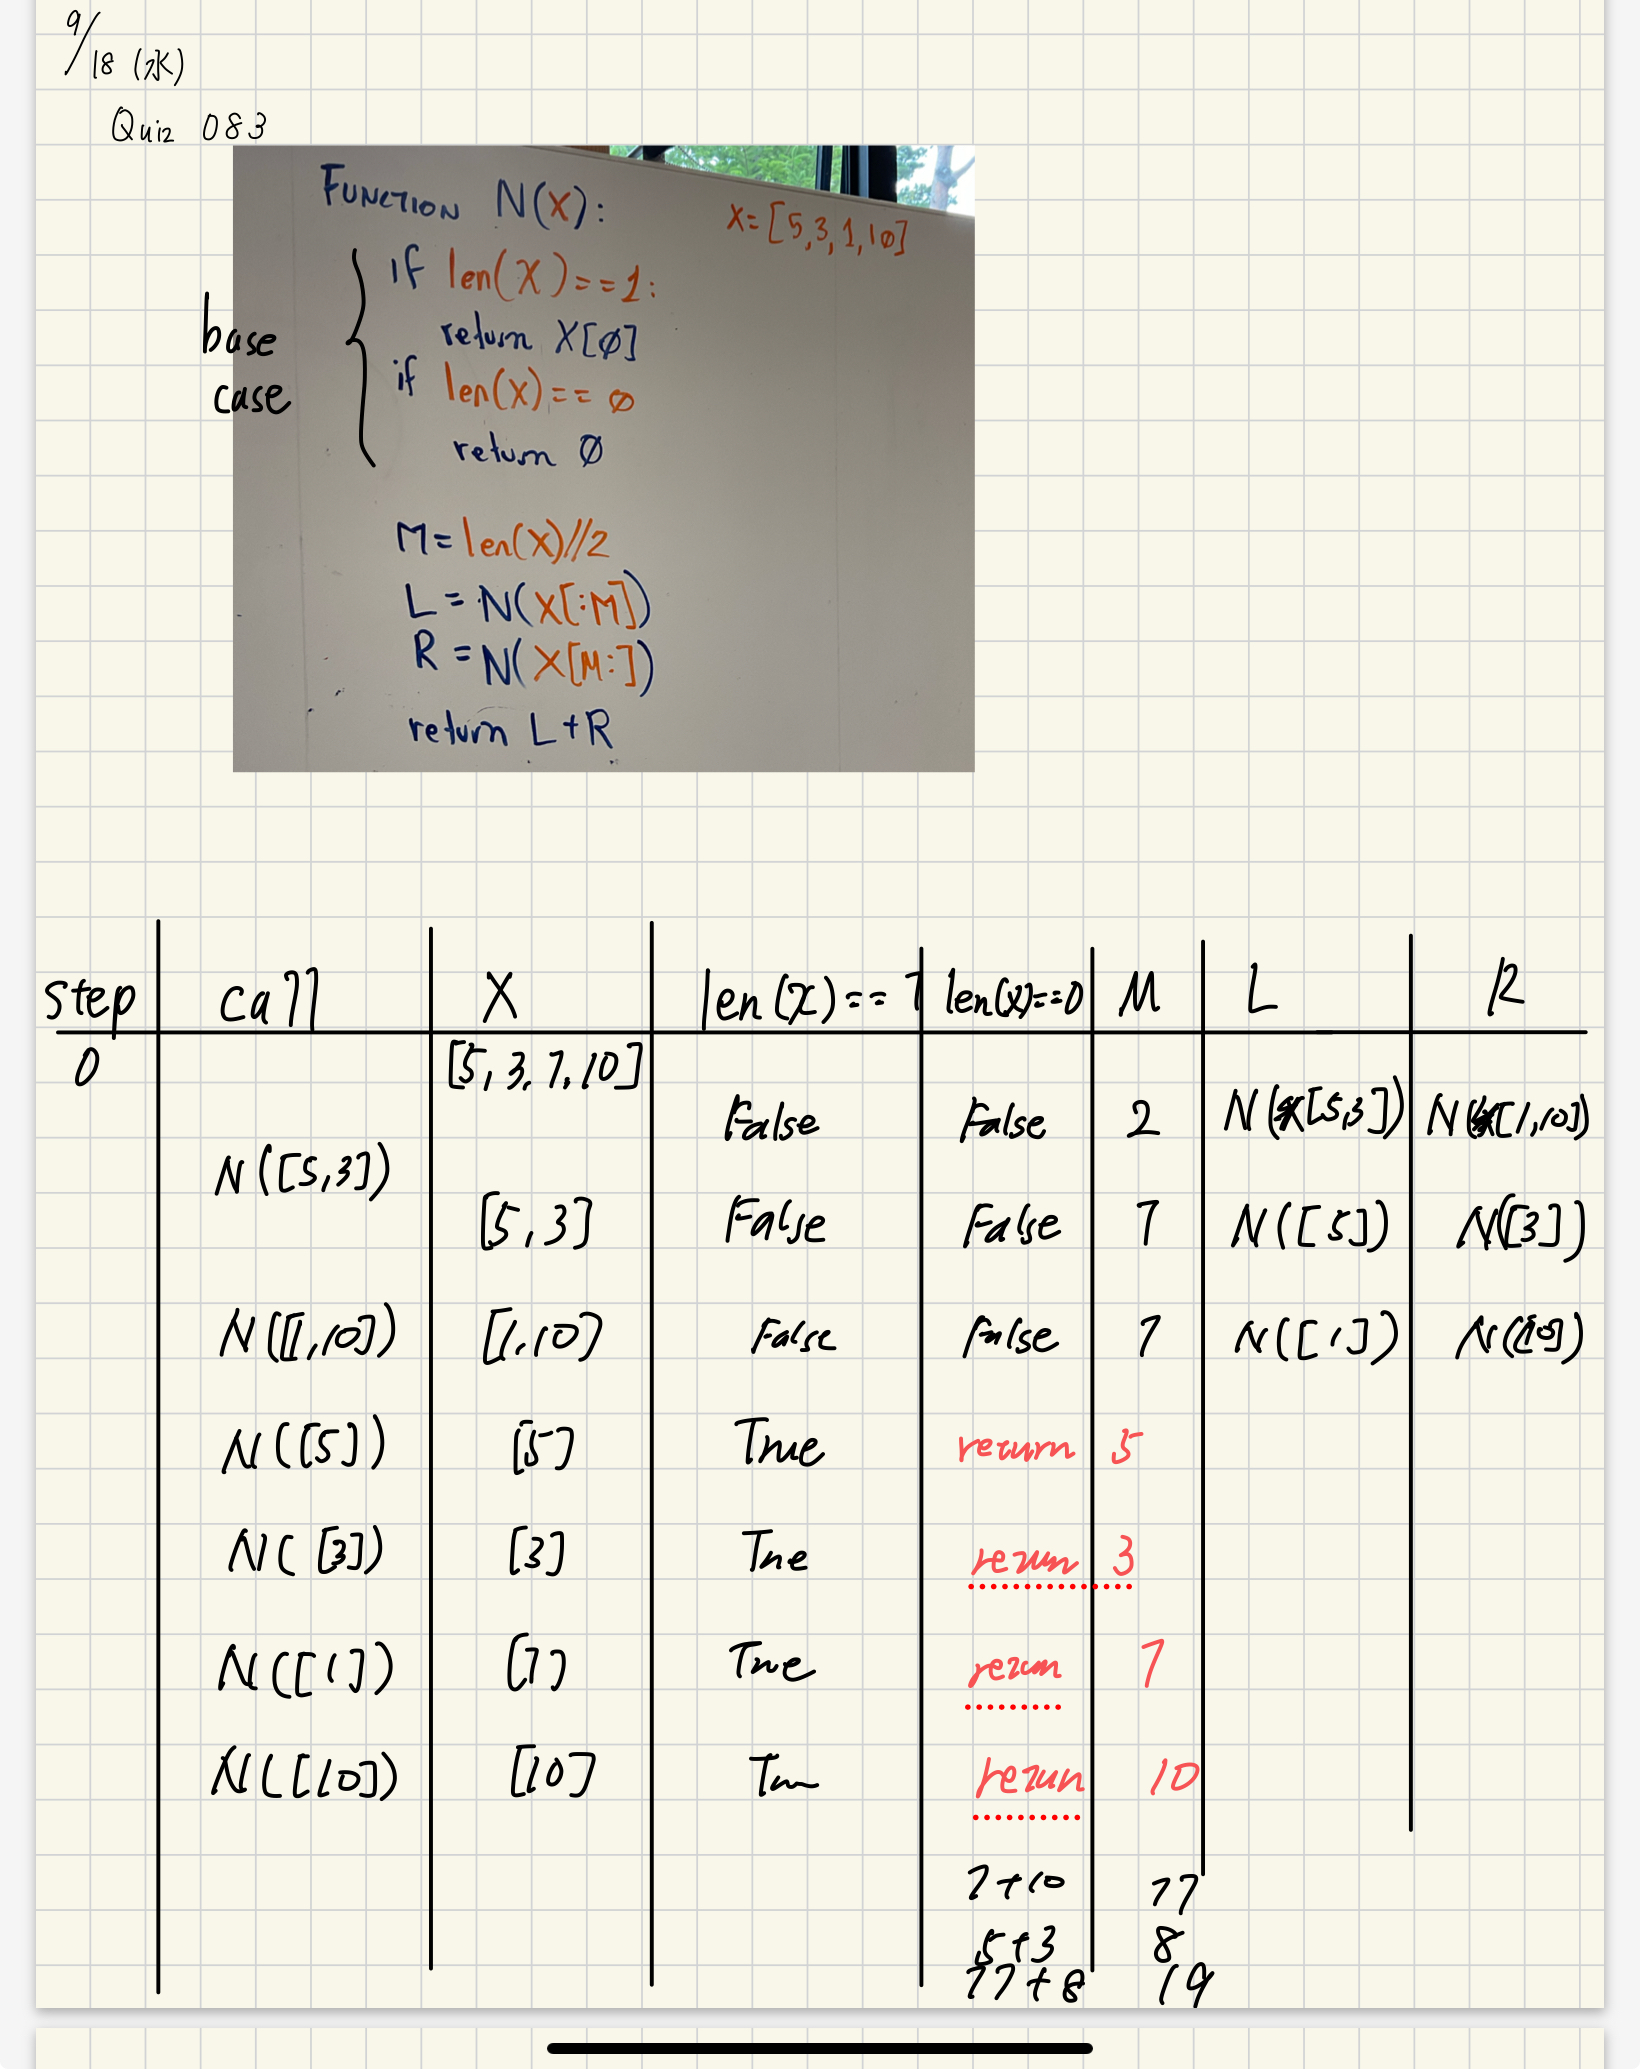 9/18 (水)
Quiz 083
FUNCTION N(X):
X=[5,3,1,10]
if len(X)==1:
return X[0]
if len(X)==0
return 0
base
case
M=len(X)//2
L=N(X[:M])
R=N(X[M:])
return L+R
step call X len(x)==1 len(x)==0 M L R
0 [5,3,1,10] False False 2 N([5,3]) N([1,10])
N([5,3]) [5,3] False False 1 N([5]) N([3])
N([1,10]) [1,10] False False 1 N([1]) N([10])
N([5]) [5] True return 5
N([3]) [3] True return 3
N([1]) [1] True return 1
N([10]) [10] True return 10
1+10 11
5+3 8
11+8 19